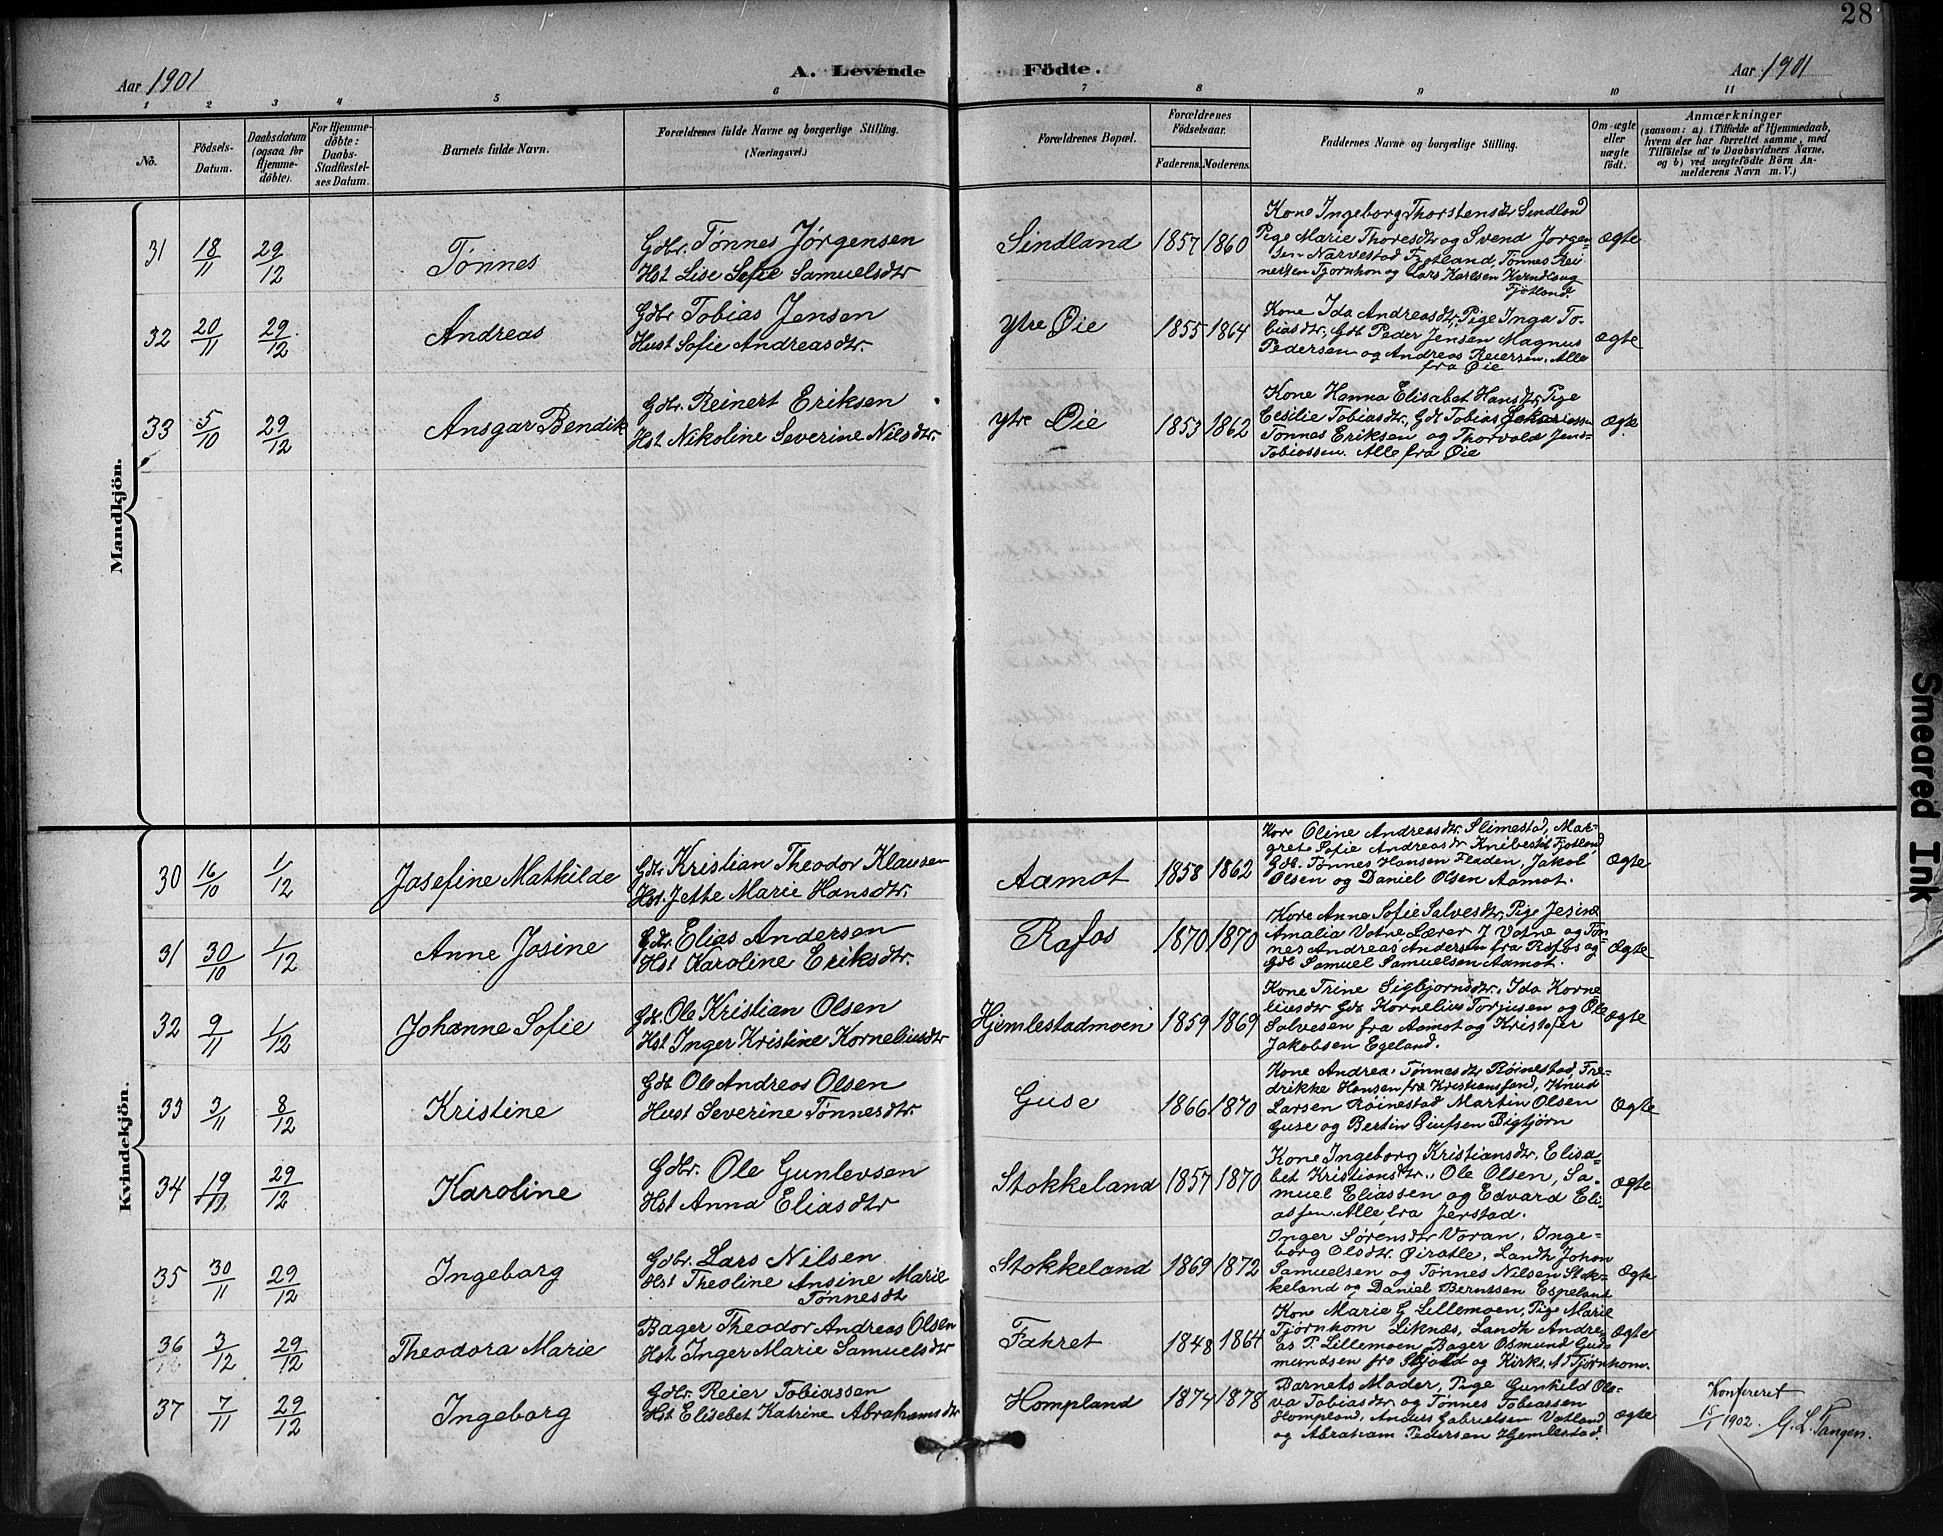 28
Aar 1901
A. Levende Födte.
Aar 1901
1 2 3 4 5 6 7 8 9 10 11
No.
Födsels-
Datum.
Daabsdatum
(ogsaa for
Hjemme-
döbte).
For Hjemme-
döbte:
Daabs-
Stadfæstel-
ses Datum.
Barnets fulde Navn.
Forældrenes fulde Navne og borgerlige Stilling.
(Næringsvei.)
Forældrenes Bopæl.
Forældrenes
Födselsaar.
Faderens. Moderens.
Faddernes Navne og borgerlige Stilling.
Om ægte
eller
uægte
født.
Anmærkninger
(saasom: a) i Tilfælde af Hjemmedaab,
hvem der har forrettet samme, med
Tilföielse af to Daabsvidners Navne,
og b) ved uægtefödte Börn An-
melderens Navn m.V.)
Mandkjön.
31 18/11 29/12 Tønnes
Gdbr. Tønnes Jørgensen
Hst Lise Sofie Samuelsdtr
Sindland 1857 1860
Kone Ingeborg Thorstensdtr Sindland
Pige Marie Thoresdtr og Svend Jørgen-
sen Narvestad Fjotland, Tønnes Rei
nertsen Tjørnhom og Lars Karlsen
Fjotland.
Ægte
32 20/11 29/12 Andreas
Gdbr Tobias Jensen
Hust Sofie Andreasdtr.
Ytre Øie 1855 1864
Kone Ida Andreasdtr, Pige Inga To-
biasdtr, Gdb Peder Jensen, Magnus
Pedersen og Andreas Reiersen. Alle
fra Øie
Ægte
33 5/10 29/12 Ansgar Bendik
Gdbr. Reinert Eriksen
Hst Nikoline Severine Nilsdtr.
Ytre Øie 1853 1862
Kone Hanna Elisabet Hansdtr, Pige
Cesilie Tobiasdtr., Gdb Tobias
Tønnes Eriksen og Thorvald Jens
Tobiassen. Alle fra Øie
Ægte
Kvindekjön.
30 16/10 1/12 Josefine Mathilde
Gdbr Kristian Theodor Klausen
Hst. Jette Marie Hansdtr.
Aamot 1858 1862
Kone Oline Andreasdtr. Slimestad, Mar-
grete Sofie Andreasdtr Fjotland
Gdb. Tønnes Hansen Fladen, Jakob
Olsen og Daniel Olsen Aamot.
Ægte
31 30/10 1/12 Anne Josine
Gdbr. Elias Andersen
Hst Karoline Eriksdtr.
Rafos 1870 1870
Kone Anne Sofie Salvesdtr, Pige Jesine
Amalia Votne Lærer J Votne og Tøn-
nes Andreas Andersen fra Rafos og
Gdb Samuel Samuelsen Aamot.
Ægte
32 9/11 1/12 Johanne Sofie
Gdb. Ole Kristian Olsen
Hst Inger Kristine Korneliusdtr
Hjemlestadmoen 1859 1869
Kone Trine Sigbjørnsdtr, Ida Korne
liusdtr Gdb Kornelius Torjusen og Ole
Salvesen fra Aamot og Kristofer
Jakobsen Egeland.
Ægte
33 3/11 8/12 Kristine
Gdb Ole Andreas Olsen
Hust Severine Tønnesdtr
Guse 1866 1870
Kone Andrea Tønnesdtr Røinestad, Fre-
drikke Hansen fra Kristiansand, Knud
Larsen Røinestad Martin Olsen
Guse og Bertin
Ægte
34 19/11 29/12 Karoline
Gdbr. Ole Gunlevsen
Hst Anna Eliasdtr
Stokkeland 1857 1870
Kone Ingeborg Kristiansdtr, Elisa-
bet Kristiansdtr., Ole Olsen, Sa-
muel Eliassen og Edvard Eli-
assen. Alle fra Jerstad.
Ægte
35 30/11 29/12 Ingeborg
Gdbr. Lars Nilsen
Hst Theoline Ansine Marie
Tønnesdt
Stokkeland 1869 1872
Inger Sørensdtr Voran, Inge-
borg Olsdtr. Landh Johan
Samuelsen og Tønnes Nilsen Stok-
keland og Daniel Berntsen Espeland
Ægte
36 3/12 29/12 Theodora Marie
Bager Theodor Andreas Olsen
Hst Inger Marie Samuelsdtr
Fakret 1848 1864
Kone Marie G Lillemoen, Pige Marie
Tjørnhom Liknæs, Landh Andre-
as T. Lillemoen Bager Osmund Gud-
mundsen fra og Kirks. Tjørnhom.
Ægte
37 7/11 29/12 Ingeborg
Gdbr. Reier Tobiassen
Hst Elisebet Katrine Abrahamsdtr
Hompland 1874 1878
Barnets Moder, Pige Gunhild Ola-
va Tobiasdtr og Tønnes Tobiassen
Hompland, Anders Gabrielsen Vatland
og Abraham Pedersen Hjemlestad.
Ægte
Konfereret
15/1 1902. G. L. Tangen.
Smeared Ink